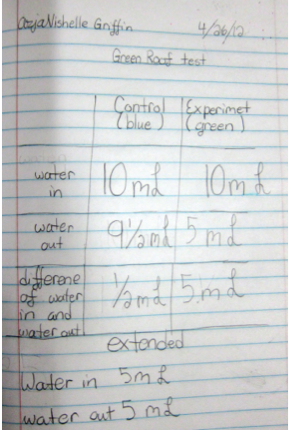 Nishelle Griffin 4/26/12
Green Roof test
Control Experimet
(blue) (green)
water in 10 mL 10 mL
water out 9 1/2 mL 5 mL
differene of water in and water out 1/2 mL 5 mL
extended
Water in 5 mL
water out 5 mL